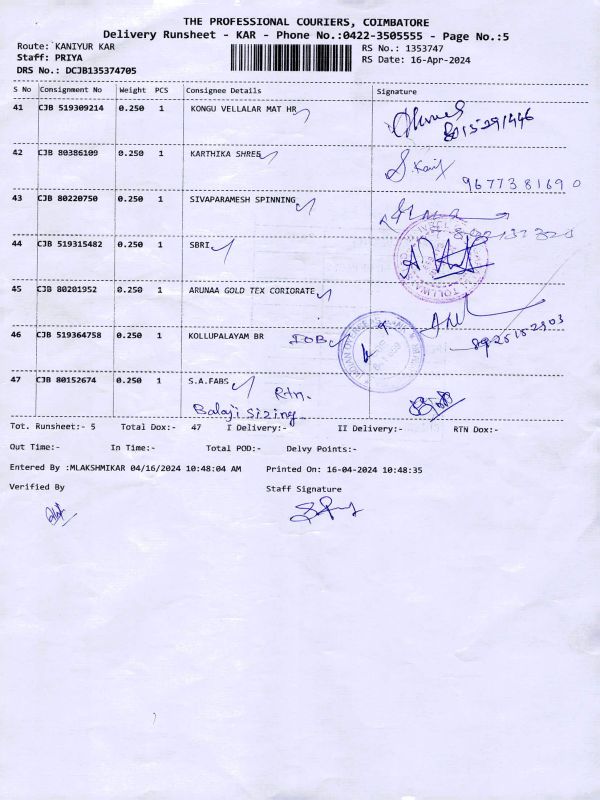 THE PROFESSIONAL COURIERS, COIMBATORE
Delivery Runsheet - KAR - Phone No.:0422-3505555 - Page No.:5
Route: KANIYUR KAR
RS No.: 1353747
Staff: PRIYA
RS Date: 16-Apr-2024
DRS No.: DCJB135374705
S No Consignment No Weight PCS Consignee Details Signature
41 CJB 519309214 0.250 1 KONGU VELLALAR MAT HR
8015291446
42 CJB 80386109 0.250 1 KARTHIKA SHREE
9677381690
43 CJB 80220750 0.250 1 SIVAPARAMESH SPINNING
44 CJB 519315482 0.250 1 SBRI
45 CJB 80201952 0.250 1 ARUNAA GOLD TEX CORIORATE
46 CJB 519364758 0.250 1 KOLLUPALAYAM BR IOB
47 CJB 80152674 0.250 1 S.A.FABS Rtn.
Balaji Sizing
Tot. Runsheet:- 5 Total Dox:- 47 I Delivery:- II Delivery:- RTN Dox:-
Out Time:- In Time:- Total POD:- Delvy Points:-
Entered By :MLAKSHMIKAR 04/16/2024 10:48:04 AM Printed On: 16-04-2024 10:48:35
Verified By Staff Signature